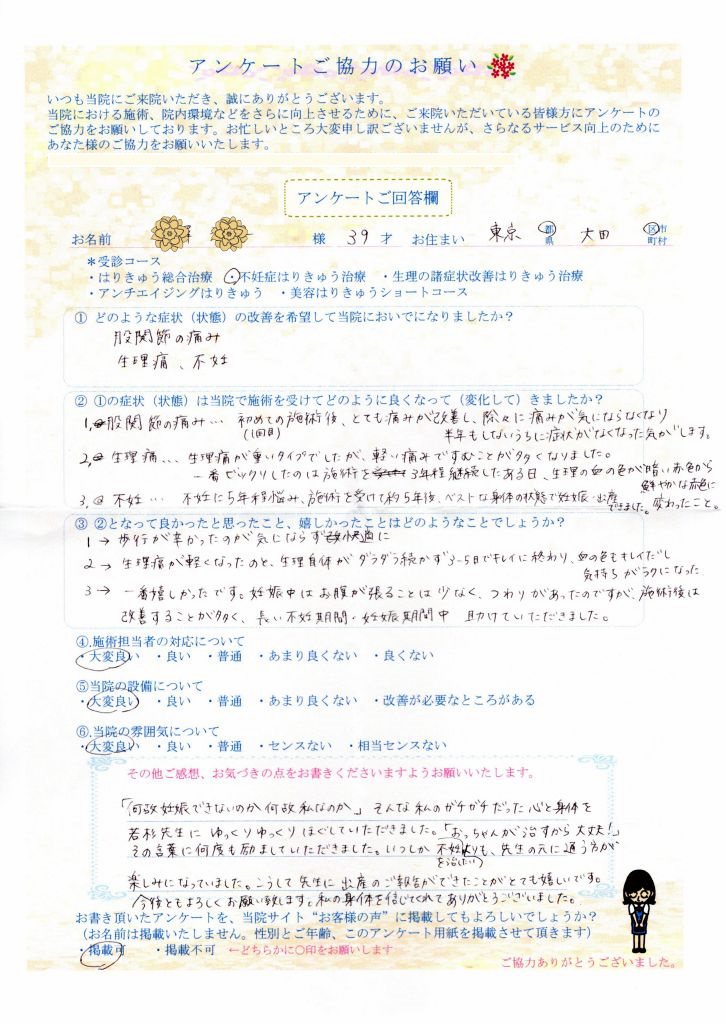 アンケートご協力のお願い
いつも当院にご来院いただき、誠にありがとうございます。
当院における施術、院内環境などをさらに向上させるために、ご来院いただいている皆様方にアンケートの
ご協力をお願いしております。お忙しいところ大変申し訳ございませんが、さらなるサービス向上のために
あなた様のご協力をお願いいたします。
アンケートご回答欄
お名前 様 39 才 お住まい 東京 都県 大田 区市町村
＊受診コース
・はりきゅう総合治療 ・不妊症はりきゅう治療 ・生理の諸症状改善はりきゅう治療
・アンチエイジングはりきゅう ・美容はりきゅうショートコース
① どのような症状（状態）の改善を希望して当院においでになりましたか？
股関節の痛み
生理痛、不妊
② ①の症状（状態）は当院で施術を受けてどのように良くなって（変化して）きましたか？
1, 股関節の痛み… 初めての施術後、とても痛みが改善し、除々に痛みが気にならなくなり
(1回目) 半年もしないうちに症状がなくなった気がします。
2, 生理痛… 生理痛が重いタイプでしたが、軽い痛みですむことが多くなりました。
一番ビックリしたのは施術を3年程継続したある日、生理の血の色が暗い赤色から
鮮やかな赤色に
変わったこと。
3, 不妊… 不妊に5年程悩み、施術を受けて約5年後、ベストな身体の状態で妊娠・出産
できました。
③ ②となって良かったと思ったこと、嬉しかったことはどのようなことでしょうか？
1 → 歩行が辛かったのが気にならず快適に
2 → 生理痛が軽くなったのと、生理自体がダラダラ続かず3-5日でキレイに終わり、血の色もキレイだし
気持ちがラクになった
3 → 一番嬉しかったです。妊娠中はお腹が張ることは少なく、つわりがあったのですが、施術後は
改善することが多く、長い不妊期間・妊娠期間中 助けていただきました。
④.施術担当者の対応について
・大変良い ・良い ・普通 ・あまり良くない ・良くない
⑤当院の設備について
・大変良い ・良い ・普通 ・あまり良くない ・改善が必要なところがある
⑥.当院の雰囲気について
・大変良い ・良い ・普通 ・センスない ・相当センスない
その他ご感想、お気づきの点をお書きくださいますようお願いいたします。
「何故妊娠できないのか何故私なのか」そんな私のガチガチだった心と身体を
若杉先生にゆっくりゆっくりほぐしていただきました。「おっちゃんが治すから大丈夫!」
その言葉に何度も励ましていただきました。いつしか不妊よりも、先生の元に通う方が
を治したい
楽しみになっていました。こうして先生に出産のご報告ができたことがとても嬉しいです。
今後ともよろしくお願い致します。私の身体を信じてくれてありがとうございました。
お書き頂いたアンケートを、当院サイト“お客様の声”に掲載してもよろしいでしょうか？
（お名前は掲載いたしません。性別とご年齢、このアンケート用紙を掲載させて頂きます）
・掲載可 ・掲載不可 ←どちらかに○印をお願いします
ご協力ありがとうございました。